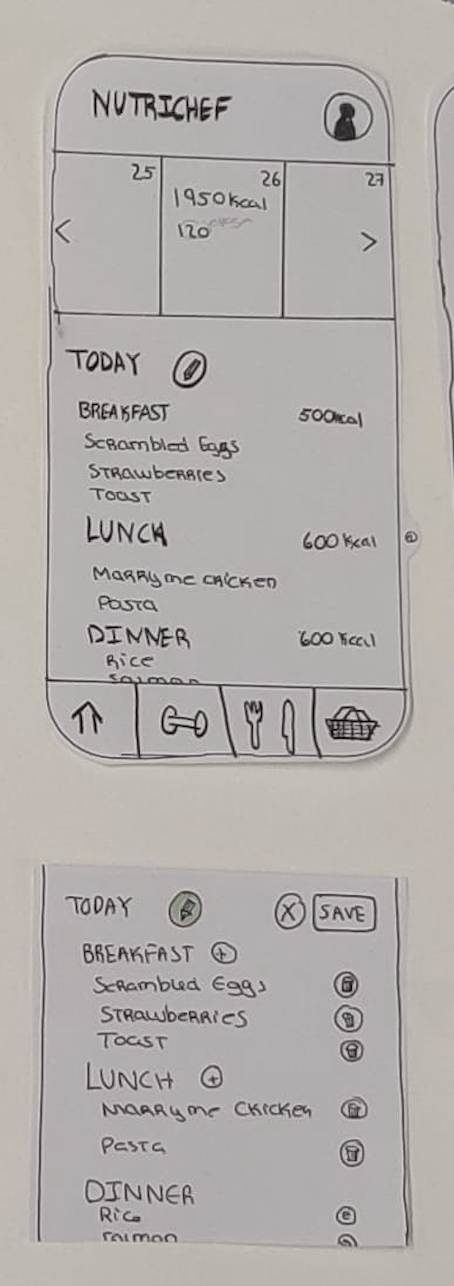 NUTRICHEF
25 26 27
1950 kcal
120
< >
TODAY
BREAKFAST 500kcal
Scrambled Eggs
Strawberries
Toast
LUNCH 600 kcal
Marry me chicken
Pasta
DINNER 600 kcal
Rice
Salmon
TODAY X SAVE
BREAKFAST +
Scrambled Eggs
Strawberries
Toast
LUNCH +
Marry me chicken
Pasta
DINNER
Rice
Salmon